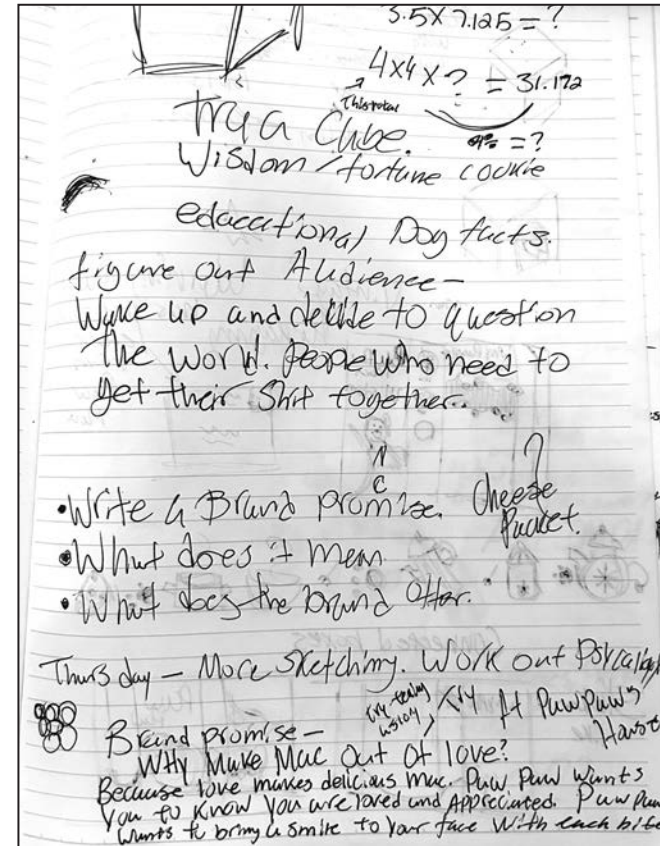 3.5 x 7.125 = ?
4x4 x ? = 31.172
= ?
try a Cube.
Wisdom / fortune cookie
educational Dog facts.
figure out Audience -
Wake up and decide to question
the World. People who need to
get their Shit together.
N
C
?
• Write a Brand promise. Cheese
Packet.
• What does it mean
• What does the brand offer.
Thursday - More Sketching. Work out
Try At PawPaw's
House
Brand promise -
WHY Make Mac Out Of love?
Because love makes delicious mac. Paw Paw wants
you to know you are loved and Appreciated. Paw Paw
wants to bring a smile to your face with each bite